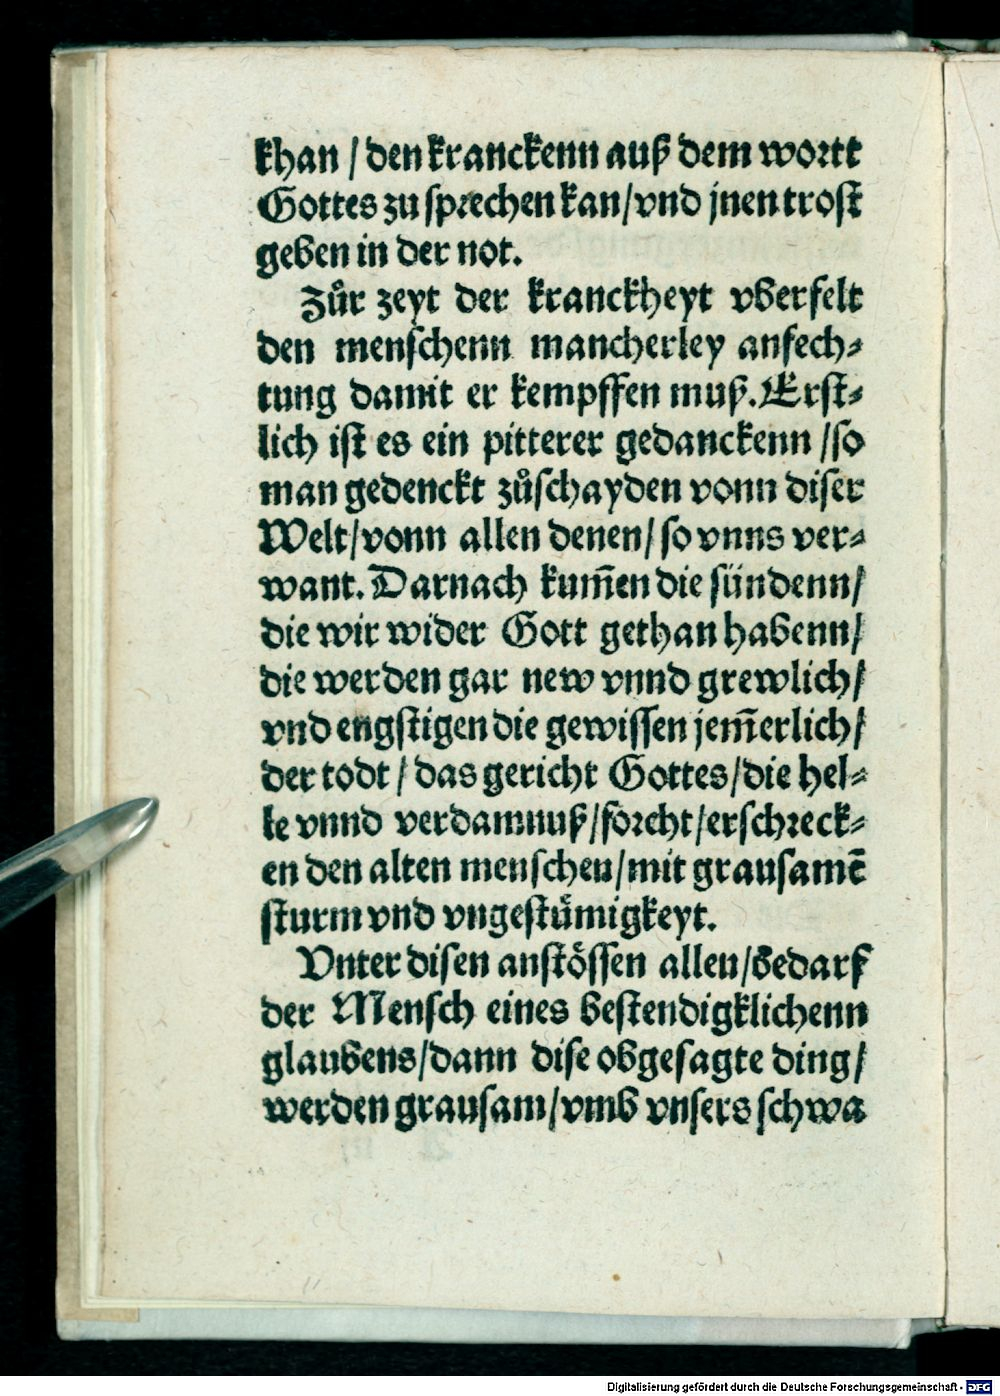 khan / den kranckenn auß dem wortt
Gottes zu sprechen kan/vnd jnen trost
geben in der not.
Zuͦr zeyt der kranckheyt vberfelt
den menschenn mancherley anfech⸗
tung damit er kempffen muß. Erst⸗
lich ist es ein pitterer gedanckenn /so
man gedenckt zuͦschayden vonn diser
Welt/vonn allen denen/ so vnns ver⸗
want. Darnach kum̄en die sündenn/
die wir wider Gott gethan habenn/
die werden gar new vnnd grewlich/
vnd engstigen die gewissen jem̄erlich/
der todt / das gericht Gottes/die hel⸗
le vnnd verdamnuß/forcht/erschreck⸗
en den alten menschen/mit grausamē
sturm vnd vngestuͤmigkeyt.
Vnter disen anstoͤssen allen/bedarf
der Mensch eines bestendigklichenn
glaubens/dann dise obgesagte ding/
werden grausam/vmb vnsers schwa
Digitalisierung gefördert durch die Deutsche Forschungsgemeinschaft - DFG